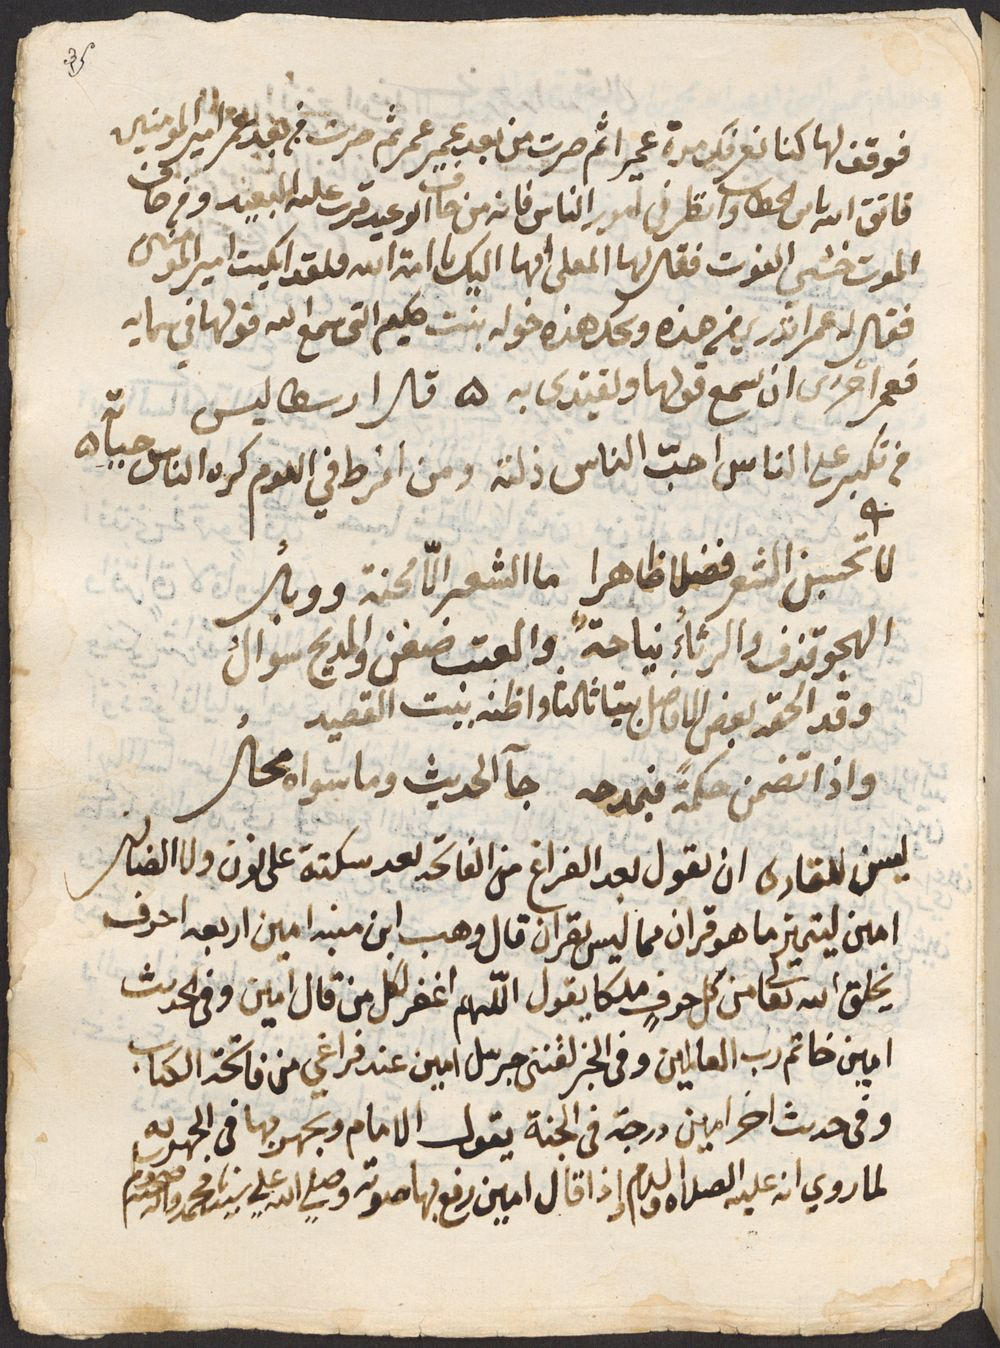 ٣٥
فوقف لها كنا نعرفك مرة عميرا ثم صرت من بعد عمير عمر ثم صرت من بعد عمر امير المومنين
فاتق الله يابن الخطاب وانظر في امور الناس فانه من خاف الوعيد قرب عليه البعيد ومن خاف
الموت خشي الفوت فقال لها المعلى ايها اليك يا امة الله فلقد ابكيت امير المومنين
فقال له عمر اتدري من هذه ويحك هذه خوله بنت حكيم التي سمع الله قولها في سمايه
فعمر احرى ان يسمع قولها ويقتدى به ه قال ارسطاليس
من تكبر على الناس احبّ الناس ذلته ومن افرط في اللوم كره الناس حياته ه
لا تحسبن الشعر فضلا ظاهرا ما الشعر الّا محنة ووبالُ
الهجو قذف والرثاءُ نياحةٌ والعتب ضغن والمديح سوالُ
وقد الحقه بعض الافاضل بيتا ثالثا واظنه بيت القصيد
واذا تضمن حكمةً فبمدحه جآ الحديث وما سواه محالُ
ليسن للقارى ان يقول بعد الفراغ من الفاتحه بعد سكتة على نون ولا الضالين
امين ليتميّز ما هو قران مما ليس بقران قال وهب ابن منبه امين اربعه احرف
يخلق الله تعالى من كل حرفٍ ملكا يقول اللّهم اغفر لكل من قال امين وفي الحديث
امين خاتم رب العالمين وفي الخبر لقنني جبريل امين عند فراغي من فاتحة الكتاب
وفي حديث اخر امين درجة في الجنة يقول الامام ويجهر بها في الجهريه
لما روي انه عليه الصلاه والسلام اذا قال امين رفع بها صوته وصلى الله على سيدنا محمد واله وصحبه وسلم